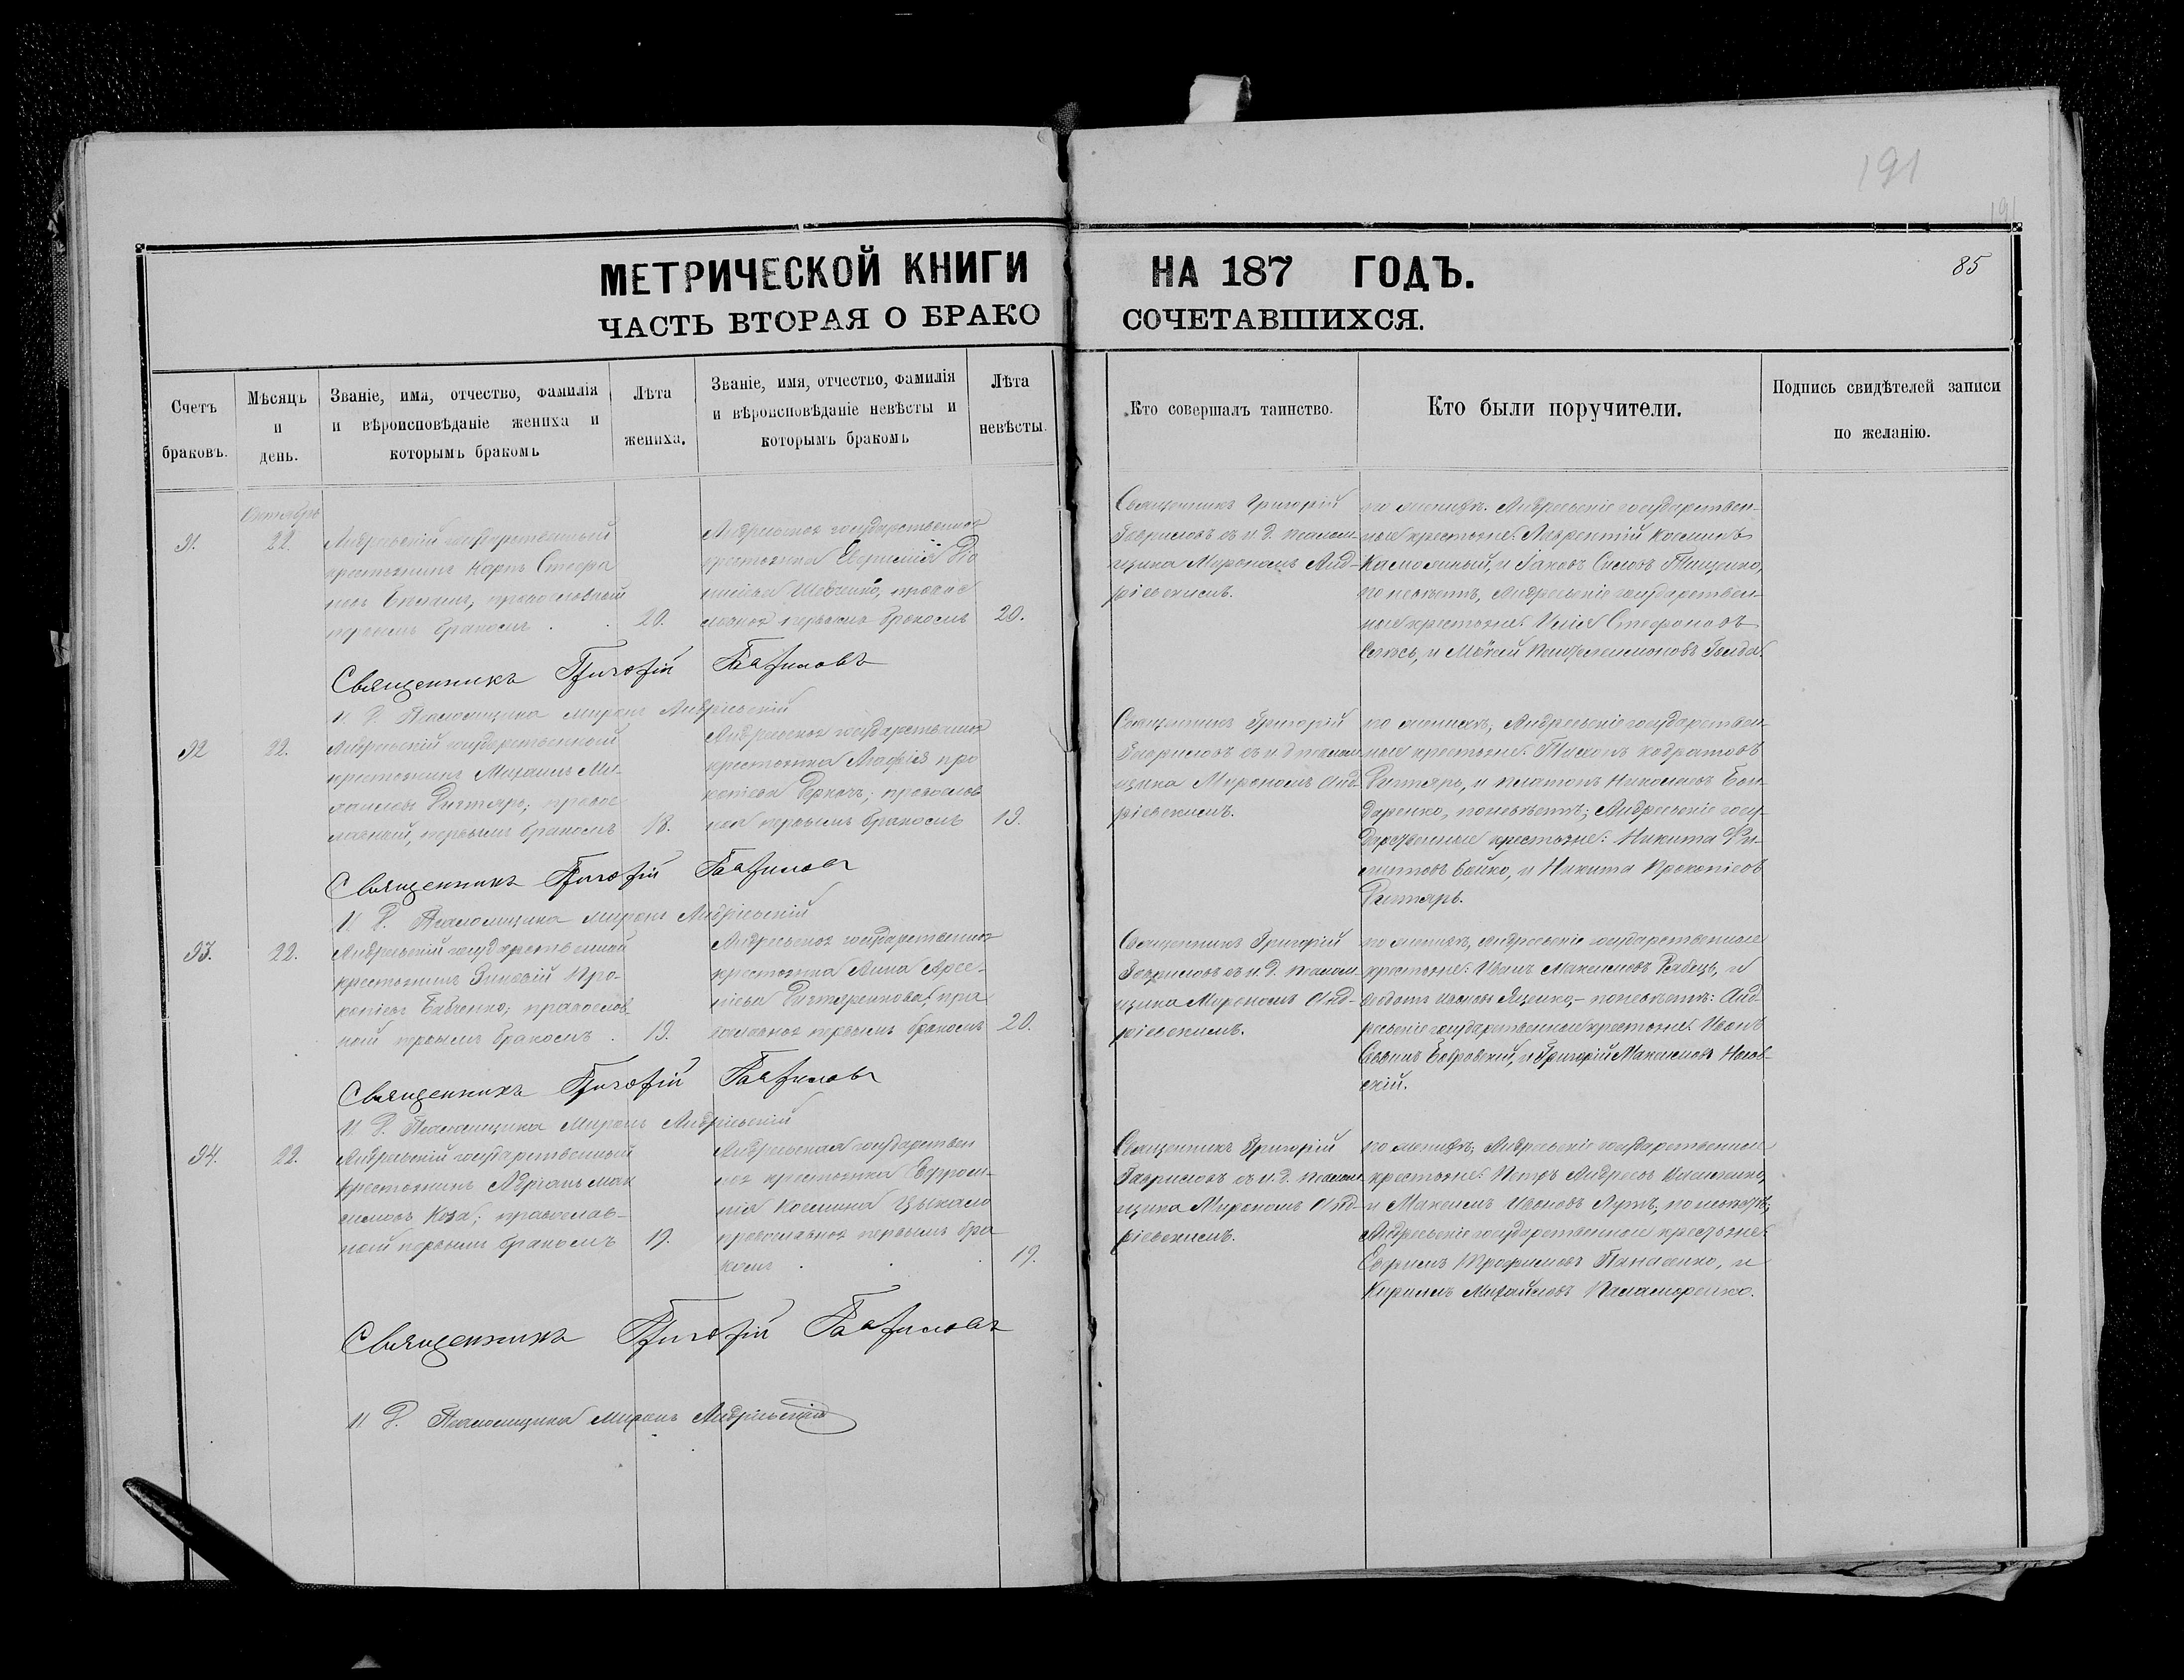 191
191
МЕТРИЧЕСКОЙ КНИГИ НА 187 ГОДЪ.
85
ЧАСТЬ ВТОРАЯ О БРАКОСОЧЕТАВШИХСЯ.
Счетъ браковъ.
Мѣсяцъ и день.
Званіе, имя, отчество, фамилія
и вѣроисповѣданіе жениха и
которымъ бракомъ
Лѣта жениха.
Званіе, имя, отчество, фамилія
и вѣроисповѣданіе невѣсты и
которымъ бракомъ
Лѣта невѣсты.
Кто совершалъ таинство.
Кто были поручители.
Подпись свидѣтелей записи
по желанію.
Октябрь
91.
22.
государственный
крестьянинъ Карпъ Стефа
новъ православный
первымъ бракомъ
20.
государственная
крестьянка
Шевченко, правос
лавная первымъ бракомъ
20.
Священникъ Григорій
Гавриловъ съ и. д. псалом-
щика Мирономъ Анд-
ріевскимъ.
по женихѣ: государствен-
ные крестьяне: Лаврентій Косминъ
и Іаковъ Тищенко,
по невѣстѣ, государствен-
ные крестьяне: Стефановъ
и Пантелеимоновъ
Священникъ Григорій Гавриловъ
И. Д. Псаломщика Миронъ Андріевскій
92
22.
государственный
крестьянинъ Михаилъ Ми-
хаиловъ Дихтярь; правос
лавный, первымъ бракомъ
18.
государственная
крестьянка Агафія Про
копіева Деркачъ; православ
ная первымъ бракомъ
19.
Священникъ Григорій
Гавриловъ съ и. д. псалом
щика Мирономъ Анд
ріевскимъ.
по женихѣ, государствен-
ные крестьяне:
Дихтярь, и Платонъ Николаевъ Бон-
даренко, по невѣстѣ; госу-
дарственные крестьяне: Никита
Бойко, и Никита Прокопіевъ
Дихтярь.
Священникъ Григорій Гавриловъ
И. Д. Псаломщика Миронъ Андріевскій
93.
22.
государственный
крестьянинъ Зиновій Про-
копіевъ Бабченко; православ
ный первымъ бракомъ
19.
государственная
крестьянка Анна Арсе-
ніева Дихтяренкова, пра
вославная первымъ бракомъ
20.
Священникъ Григорій
Гавриловъ съ и. д. псалом
щика Мирономъ Анд-
ріевскимъ.
по женихѣ, государственные
крестьяне: Иванъ Максимовъ Рябецъ, и
Ивановъ Яценко, – по невѣстѣ:
государственные крестьяне: Иванъ
Бобровскій, и Григорій Максимовъ
скій.
Священникъ Григорій Гавриловъ
И. Д. Псаломщика Миронъ Андріевскій
94.
22.
государственный
крестьянинъ Адріанъ Мак
симовъ Коза; православ-
ный первымъ бракомъ
19.
государствен
ная крестьянка Евфроси-
нія Космина Цыкало
православная первымъ бра
комъ
19.
Священникъ Григорій
Гавриловъ съ и. д. псалом
щика Мирономъ Анд-
ріевскимъ.
по женихѣ, государственные
крестьяне: Петръ Андреевъ
и Максимъ Ивановъ по невѣстѣ,
государственные крестьяне:
Ефремъ Трофимовъ Панасенко, и
Кириллъ Михайловъ Паламаренко.
Священникъ Григорій Гавриловъ
И. Д. Псаломщика Миронъ Андріевскій